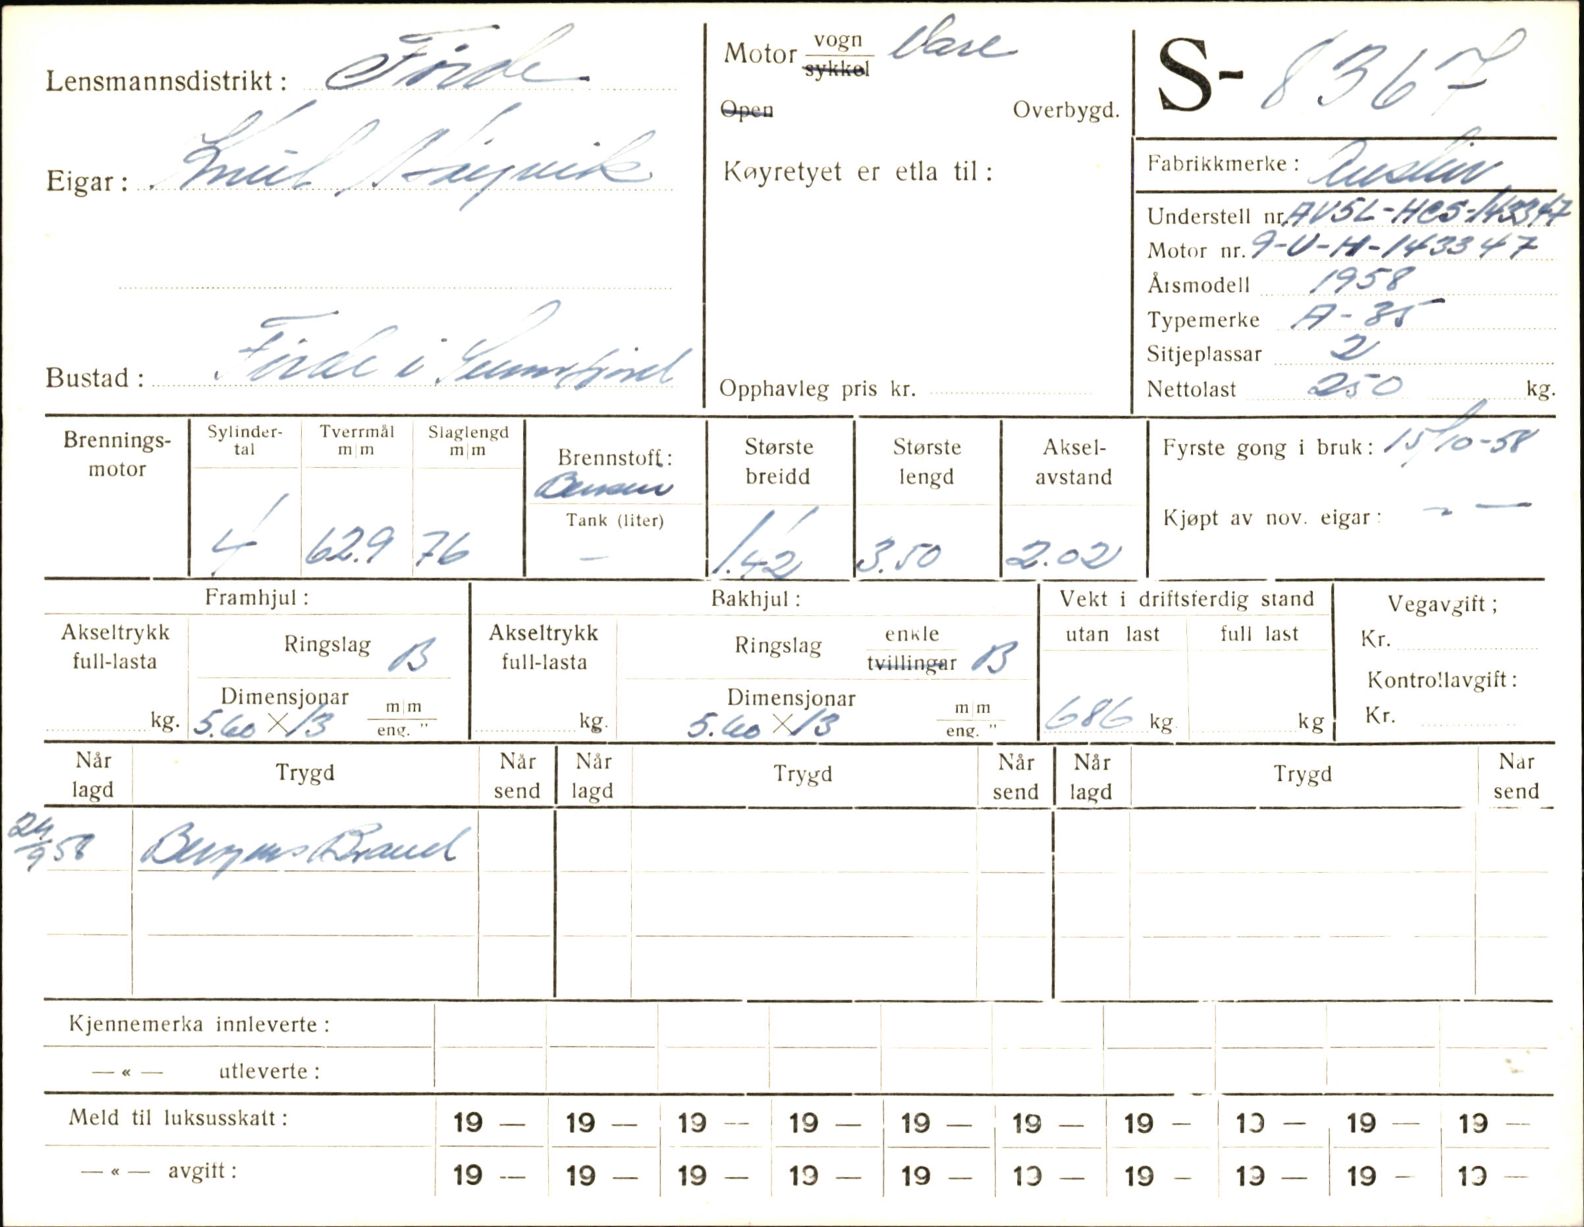 Lensmannsdistrikt: Førde
Eigar: Knut
Bustad: Førde i Sunnfjord
Motor vogn Vare
sykkel
Open Overbygd.
Køyretyet er etla til:
Opphavleg pris kr.
S- 8367
Fabrikkmerke: Austin
Understell nr. AV5L-HCS-143347
Motor nr. 9-U-H-143347
Årsmodell 1958
Typemerke A-35
Sitjeplassar 2
Nettolast 250 kg.
Brennings-motor
Sylinder-tal 4
Tverrmål m|m 62.9
Slaglengd m|m 76
Brennstoff: Bensin
Tank (liter) –
Største breidd 1.42
Største lengd 3.50
Aksel-avstand 2.02
Fyrste gong i bruk: 15/10-58
Kjøpt av nov. eigar: - —
Framhjul:
Akseltrykk full-lasta kg.
Ringslag B
Dimensjonar 5.60 X 13 m|m eng. "
Bakhjul:
Akseltrykk full-lasta kg.
Ringslag enkle tvillingar B
Dimensjonar 5.60 X 13 m|m eng. "
Vekt i driftsferdig stand
utan last 686 kg
full last kg
Vegavgift;
Kr.
Kontrollavgift:
Kr.
Når lagd Trygd Når send Når lagd Trygd Når send Når lagd Trygd Når send
24/9 58 Bergens Brand
Kjennemerka innleverte:
— « — utleverte:
Meld til luksusskatt: 19 — 19 — 19 — 19 — 19 — 19 — 19 — 19 — 19 — 19 —
— « — avgift: 19 — 19 — 19 — 19 — 19 — 19 — 19 — 19 — 19 — 19 —